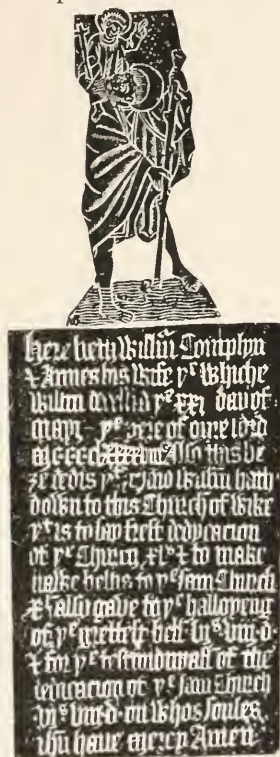 here lieth Willm̄ Complyn
& Annes his wife yͤ whiche
Willm decessid yͤ xxi day of
may yͤ yere of oure lord
mccccl Also this be
ze dedis yͭ yͤ said Willm hath
down to this Church of Wike
yͭ is to say frest dedycacion
of yͤ Church xlˢ & to make
nawe bellis to yͤ sam Church
also gave to yͤ halloyeng
of yͤ grettest bell vjˢ viij d
& for yͤ testimonyall of the
dedicacion of yͤ sam Church
vjˢ viij d on whos soules
ihu haue mercy Amen